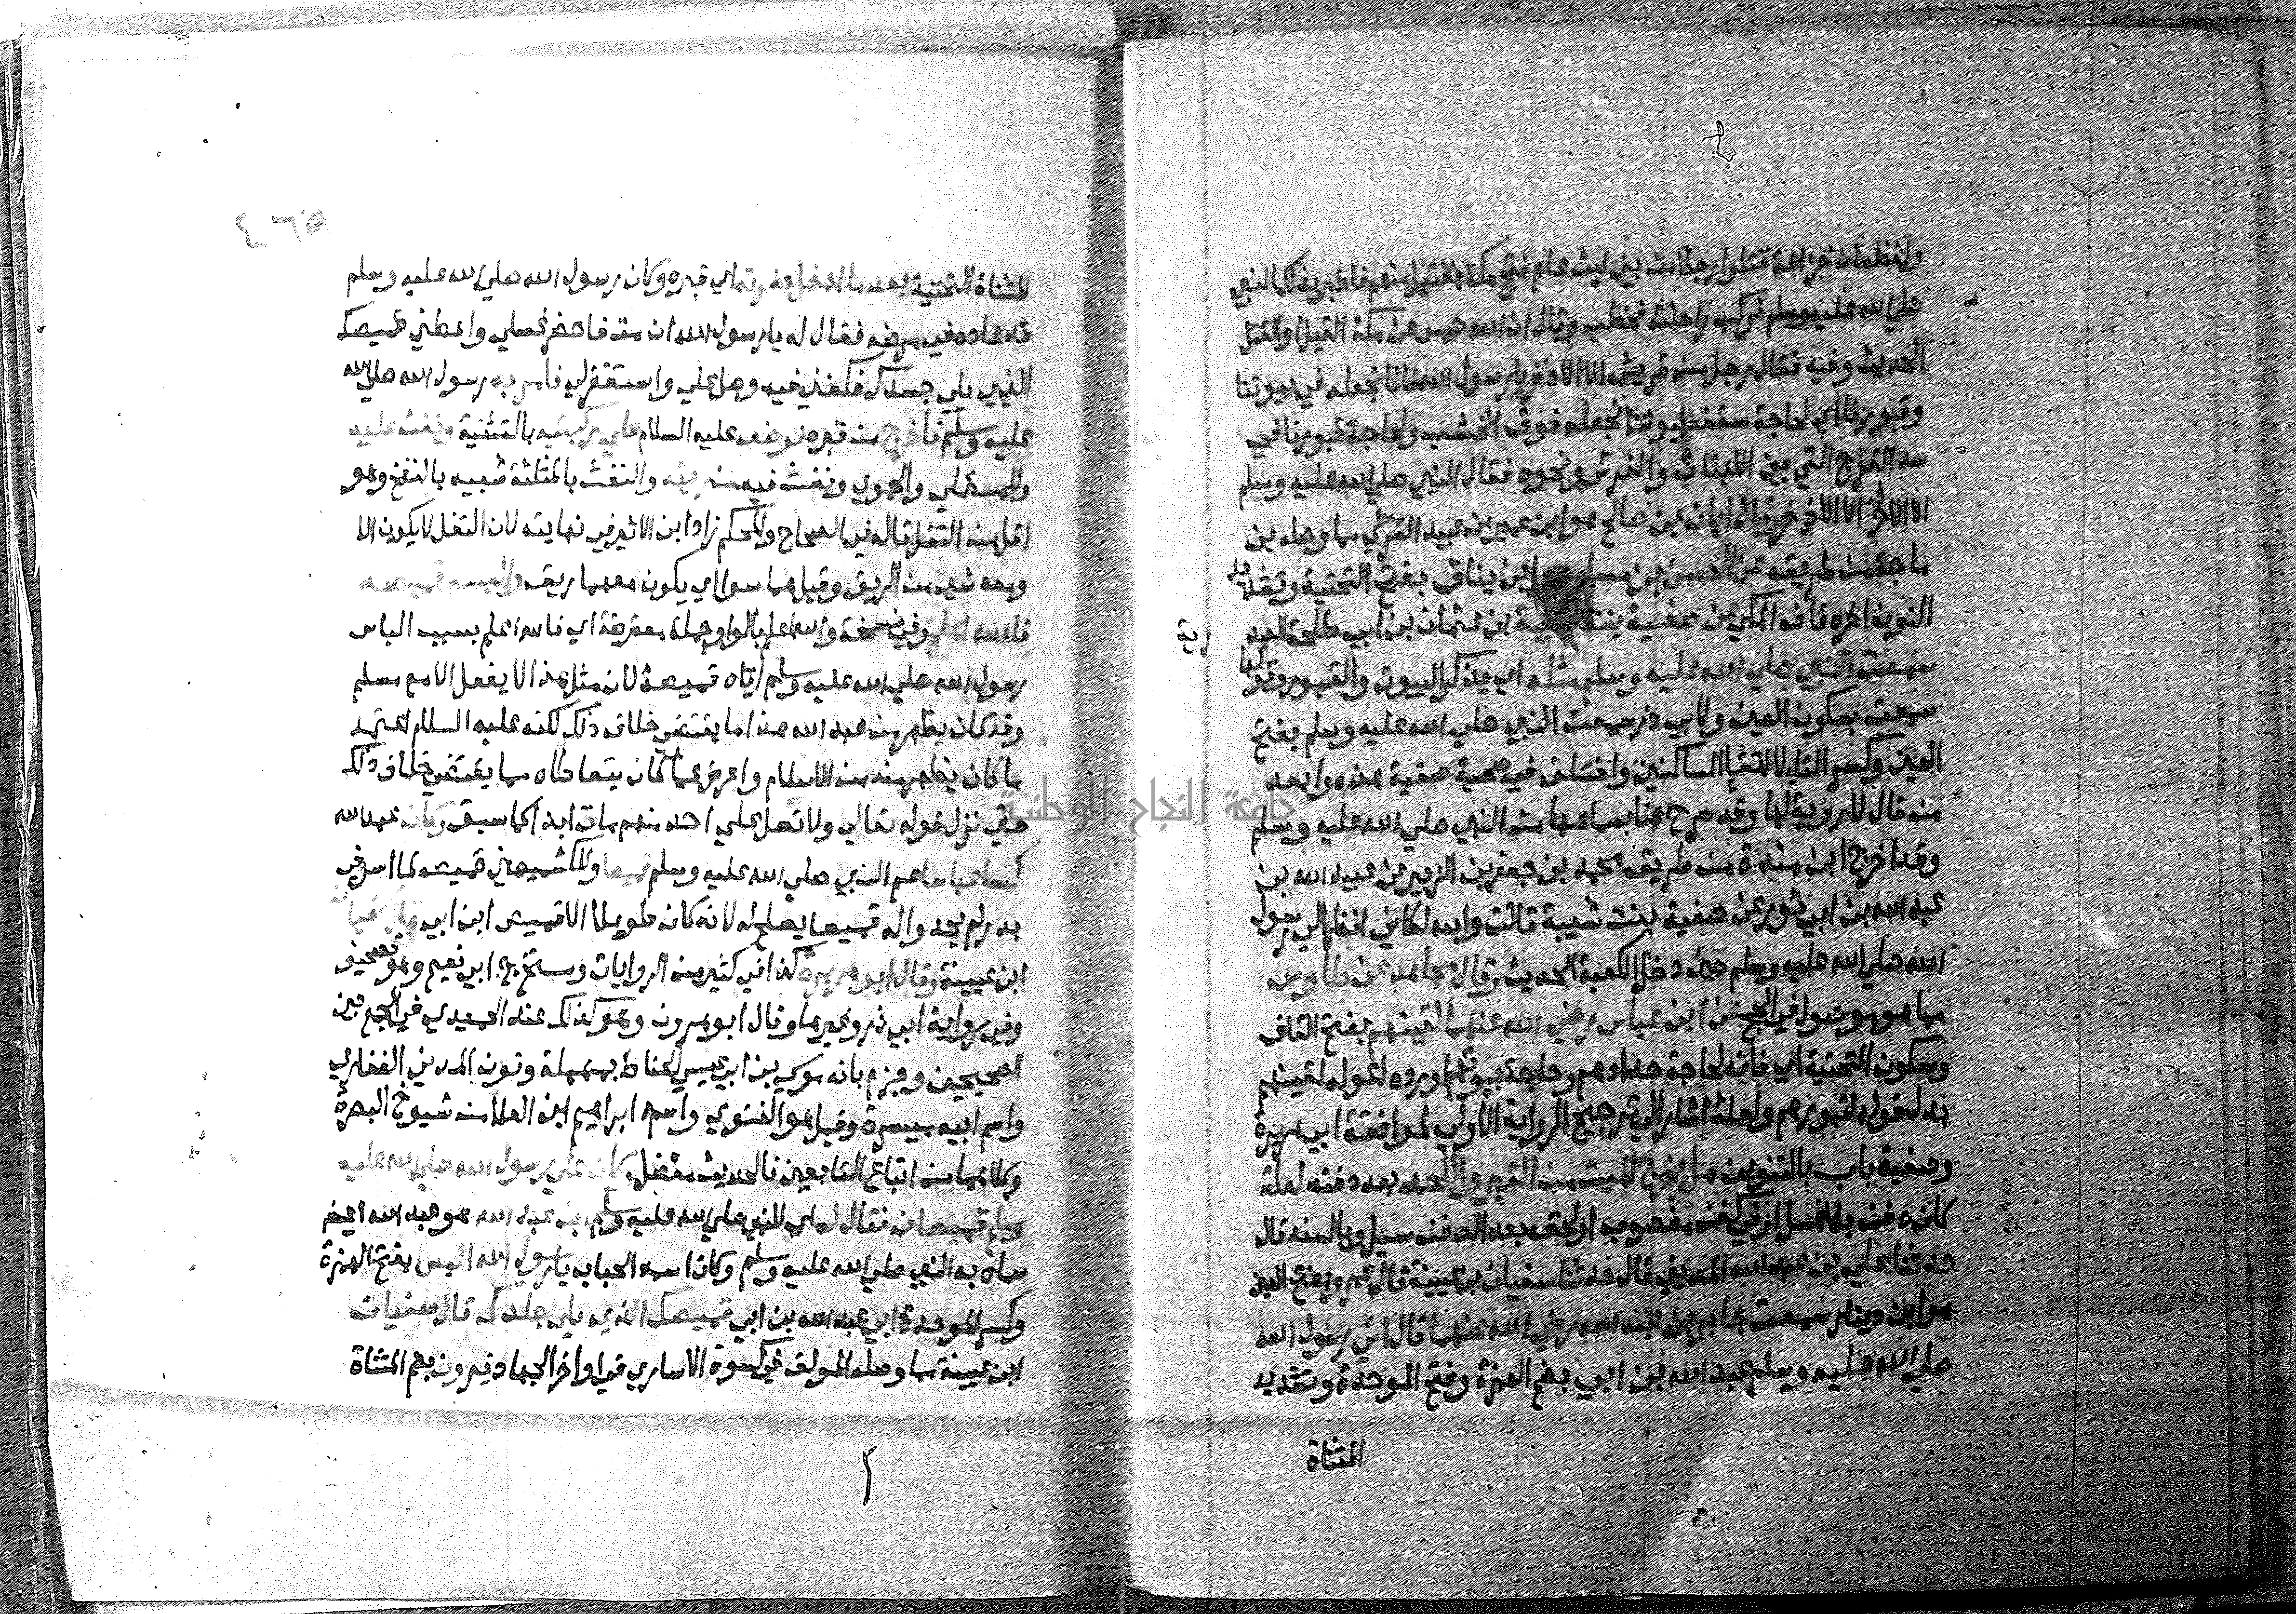 ولفظه ان خزاعة قتلوا رجلا من بني ليث عام فتح مكة بقتيل منهم فاخبر بذلك النبي
صلي الله عليه وسلم فركب راحلته فخطب وقال ان الله حبس عن مكة القيل او القتل
الحديث وفيه فقال رجل من قريش الا الاذخر يا رسول الله فانا نجعله في بيوتنا
وقبورنا اي لحاجة سقف بيوتنا نجعله فوق الخشب ولحاجة قبورنا في
سد الفرج التي بين اللبنات والفرش ونحوه فقال النبي صلي الله عليه وسلم
الا الاذخر الا الاذخر وقال ابان بن صالح هو ابن عمير بن عبيد القرشي مما وصله بن
ماجة من طريقه عن الحسن بن مسلم هو ابن يناق بفتح التحتية وتشديد
النون اخره قاف المكي عن صفية بنت شيبة بن عثمان بن ابي طلحة العبد
رية
سمعت النبي صلي الله عليه وسلم مثله اي في ذكر البيوت والقبور وقولها
سمعت بسكون العين ولابي ذر سمعت النبي صلي الله عليه وسلم بفتح
العين وكسر التا لالتقا الساكنين واختلف في صحبة صفية هذه وابعد
من قال لا روية لها وقد صرح هنا بسماعها من النبي صلي الله عليه وسلم
وقد اخرج ابن مندة من طريق محمد بن جعفر بن الزبير عن عبيد الله بن
عبد الله بن ابي ثور عن صفية بنت شيبة قالت والله لكاني انظر الي رسول
الله صلي الله عليه وسلم حين دخل الكعبة الحديث وقال مجاهد عن طاوس
مما هو موصول في الحج عن ابن عباس رضي الله عنهما لقينهم بفتح القاف
وسكون التحتية اي فانه لحاجة حدادهم وحاجة بيوتهم اورده لقوله لقينهم
بدل قوله لقبورهم ولعله اشار الي ترجيح الرواية الاولي لموافقة ابي هريرة
وصفية باب بالتنوين هل يخرج الميت من القبر واللحد بعد دفنه لعلة
كان دفن بلا غسل او في كفن مغصوب او لحقه بعد الدفن سيل وبالسند قال
حدثنا علي بن عبد الله المديني قال حدثنا سفيان بن عيينة قال عمرو بفتح العين
هو ابن دينار سمعت جابر بن عبد الله رضي الله عنهما قال اتي رسول الله
صلي الله عليه وسلم عبد الله بن ابي بضم الهمزة وفتح الموحدة وتشديد
المثناة
المثناة التحتية بعد ما ادخل حفرته اي قبره وكان رسول الله صلي الله عليه وسلم
قد عاده في مرضه فقال له يا رسول الله ان مت فاحضر غسلي واعطني قميصك
الذي يلي جسدك فكفني فيه وصل علي واستغفر لي فامر به رسول الله صلي الله
عليه وسلم فاخرج من قبره فوضعه عليه السلام علي ركبتيه بالتثنية ونفث عليه
وللمستملي والحموي ونفث فيه من ريقه والنفث بالمثلثة شبيه بالنفخ وهو
اقل من التفل قاله في الصحاح والمحكم زاد ابن الاثير في نهايته لان التفل لا يكون الا
ومعه شي من الريق وقيل هما سوا اي يكون معهما ريق والبسه قميصه
فالله اعلم وفي نسخة والله اعلم بالواو جملة معترضة اي فالله اعلم بسبب الباس
رسول الله صلي الله عليه وسلم اياه قميصه لان مثل هذا لا يفعل الا مع مسلم
وقد كان يظهر من عبد الله هذا ما يقتضي خلاف ذلك لكنه عليه السلام اعتمد
ما كان يظهر منه من الاسلام واعرض عما كان يتعاطاه مما يقتضي خلاف ذلك
حتي نزل قوله تعالي ولا تصل علي احد منهم مات ابدا كما سبق وكان عبد الله
كسا عباسا عم النبي صلي الله عليه وسلم قميصا وللكشميهني قميصه لما اسر في
بدر لم يجدوا له قميصا يصلح له لانه كان طويلا الا قميص ابن ابي قال سفيان
ابن عيينة وقال ابو هريرة كذا في كثير من الروايات ومستخرج ابي نعيم وهو تصحيف
وفي رواية ابي ذر وغيرها وقال ابو هرون وهو كذلك عند الحميدي في الجمع بين
الصحيحين وجزم بانه موسي بن ابي عيسي الحناط بمهملة ونون المدني الغفاري
واسم ابيه ميسرة وقيل هو الغنوي واسمه ابراهيم ابن العلا من شيوخ البصرة
وكلاهما من اتباع التابعين فالحديث معضل وكان علي رسول الله صلي الله عليه
وسلم قميصان فقال له اي للنبي صلي الله عليه وسلم ابن عبد الله هو عبد الله ايضا
سماه به النبي صلي الله عليه وسلم وكان اسمه الحباب يا رسول الله البس بفتح الهمزة
وكسر الموحدة ابي عبد الله بن ابي قميصك الذي يلي جلدك قال سفيان
ابن عيينة مما وصله المولف في كسوة الاساري في اواخر الجهاد فيرون بضم المثناة
جامعة النجاح الوطنية